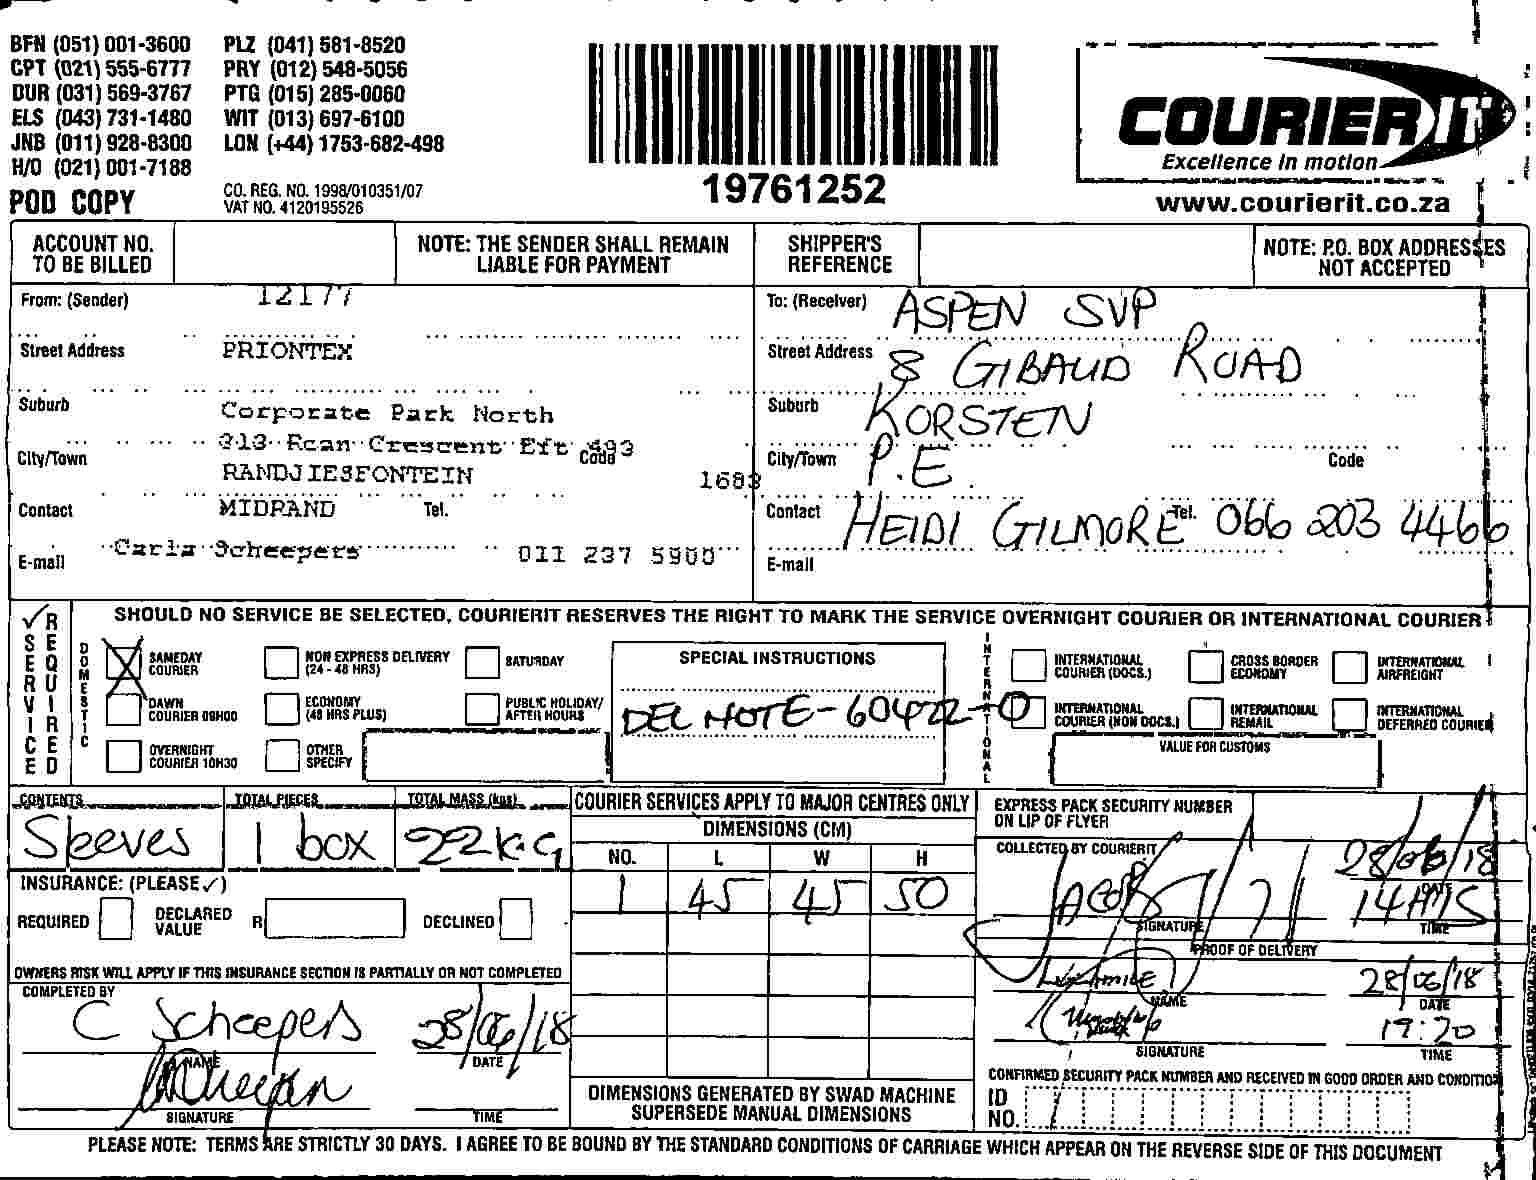 BFN (051) 001-3600 PLZ (041) 581-8520
CPT (021) 555-6777 PRY (012) 548-5056
DUR (031) 569-3767 PTG (015) 285-0060
ELS (043) 731-1480 WIT (013) 697-6100
JNB (011) 928-8300 LON (+44) 1753-682-498
H/O (021) 001-7188
POD COPY
CO. REG. NO. 1998/010351/07
VAT NO. 4120195526
19761252
COURIER IT
Excellence in motion
www.courierit.co.za
ACCOUNT NO. TO BE BILLED
NOTE: THE SENDER SHALL REMAIN LIABLE FOR PAYMENT
SHIPPER'S REFERENCE
NOTE: P.O. BOX ADDRESSES NOT ACCEPTED
From: (Sender) 12177
Street Address PRIONTEX
Suburb Corporate Park North
313 Roan Crescent Eft 493
City/Town RANDJIESFONTEIN Code 1683
Contact MIDRAND Tel.
E-mail Carla Scheepers 011 237 5900
To: (Receiver) ASPEN SVP
Street Address 8 GIBAUD ROAD
Suburb KORSTEN
City/Town P.E. Code
Contact HEIDI GILMORE Tel. 066 203 4466
E-mail
✓ SERVICE REQUIRED
SHOULD NO SERVICE BE SELECTED, COURIERIT RESERVES THE RIGHT TO MARK THE SERVICE OVERNIGHT COURIER OR INTERNATIONAL COURIER
DOMESTIC
SAMEDAY COURIER
NON EXPRESS DELIVERY (24 - 48 HRS)
SATURDAY
DAWN COURIER 09H00
ECONOMY (48 HRS PLUS)
PUBLIC HOLIDAY/ AFTER HOURS
OVERNIGHT COURIER 10H30
OTHER SPECIFY
SPECIAL INSTRUCTIONS
DEL NOTE - 60422-0
INTERNATIONAL
INTERNATIONAL COURIER (DOCS.)
CROSS BORDER ECONOMY
INTERNATIONAL AIRFREIGHT
INTERNATIONAL COURIER (NON DOCS.)
INTERNATIONAL REMAIL
INTERNATIONAL DEFERRED COURIER
VALUE FOR CUSTOMS
CONTENTS TOTAL PIECES TOTAL MASS (kgs)
Sleeves 1 box 22KG
INSURANCE: (PLEASE ✓)
REQUIRED DECLARED VALUE R DECLINED
OWNERS RISK WILL APPLY IF THIS INSURANCE SECTION IS PARTIALLY OR NOT COMPLETED
COMPLETED BY
C Scheepers 28/06/18
NAME DATE
SIGNATURE TIME
COURIER SERVICES APPLY TO MAJOR CENTRES ONLY
DIMENSIONS (CM)
NO. L W H
1 45 45 50
DIMENSIONS GENERATED BY SWAD MACHINE SUPERSEDE MANUAL DIMENSIONS
EXPRESS PACK SECURITY NUMBER ON LIP OF FLYER
COLLECTED BY COURIERIT
28/06/18
DATE
JACOB 14H15
SIGNATURE TIME
PROOF OF DELIVERY
28/06/18
NAME DATE
19:20
SIGNATURE TIME
CONFIRMED SECURITY PACK NUMBER AND RECEIVED IN GOOD ORDER AND CONDITION
ID NO.
PLEASE NOTE: TERMS ARE STRICTLY 30 DAYS. I AGREE TO BE BOUND BY THE STANDARD CONDITIONS OF CARRIAGE WHICH APPEAR ON THE REVERSE SIDE OF THIS DOCUMENT